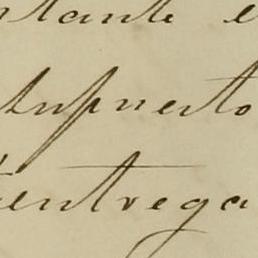 ntante e
Supuesto
entrega